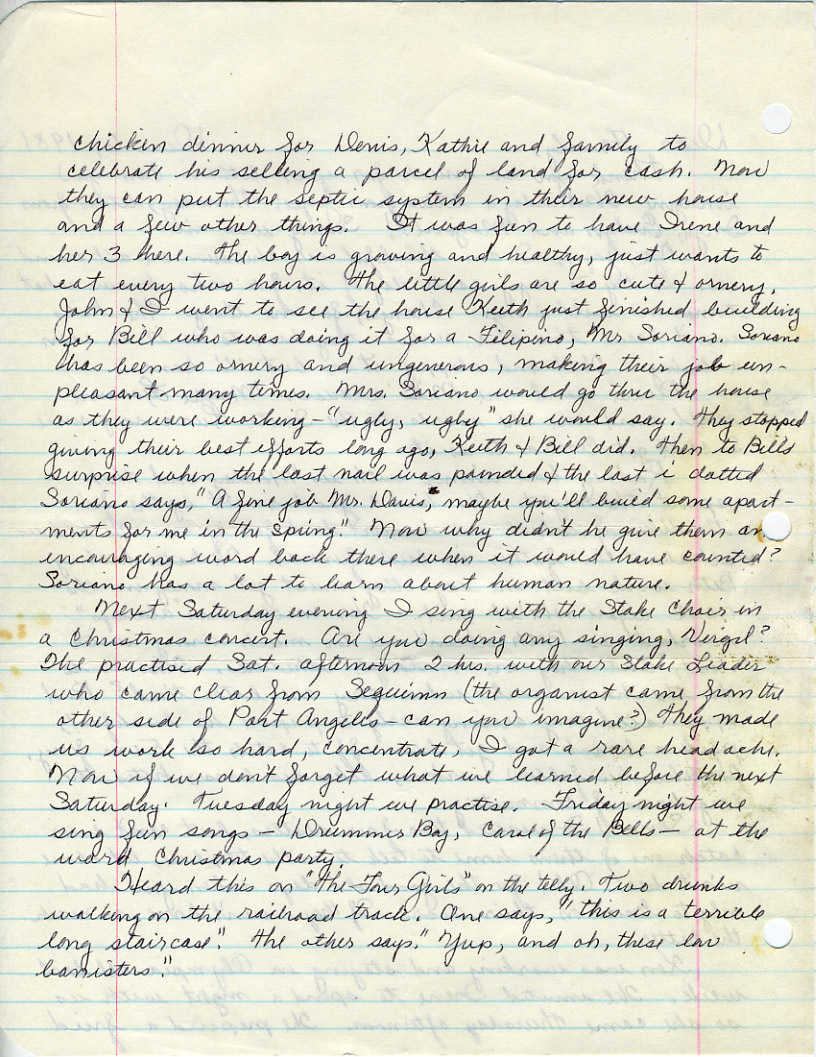 chicken dinner for Denis, Kathie and family to
celebrate his selling a parcel of land for cash. Now
they can put the septic system in their new house
and a few other things. It was fun to have Irene and
her 3 here. The boy is growing and healthy, just wants to
eat every two hours. The little girls are so cute & ornery.
John & I went to see the house Keith just finished building
for Bill who was doing it for a Filipino, Mr Soriano. Soriano
has been so ornery and ungenerous, making their job un-
pleasant many times. Mrs. Soriano would go thru the house
as they were working - "ugly, ugly" she would say. They stopped
giving their best efforts long ago, Keith & Bill did. Then to Bills
surprise when the last nail was pounded & the last i dotted
Soriano says, "A fine job Mr. Davis, maybe you'll build some apart-
ments for me in the Spring." Now why didn't he give them an
encouraging word back there when it would have counted?
Soriano has a lot to learn about human nature.
Next Saturday evening I sing with the Stake Choir in
a Christmas concert. Are you doing any singing, Virgil?
The practised Sat. afternoon 2 hrs. with our Stake Leader
who came clear from Sequimn (the organist came from the
other side of Port Angeles - can you imagine?) They made
us work so hard, concentrate, I got a rare headache.
Now if we don't forget what we learned before the next
Saturday. Tuesday night we practise. Friday night we
sing fun songs - Drummer Boy, Carol of the Bells - at the
ward Christmas party.
Heard this on "The Four Girls" on the telly. Two drunks
walking on the railroad track. One says, "this is a terrible
long staircase." The other says." Yup, and oh, these low
banisters."